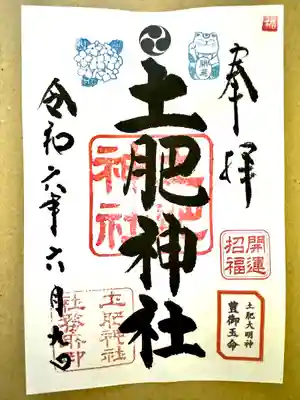 福
奉拝
開運
土肥神社
土肥神社
開運
招福
土肥大明神
豊御玉命
令和六年六月九日
土肥神社
社務所印